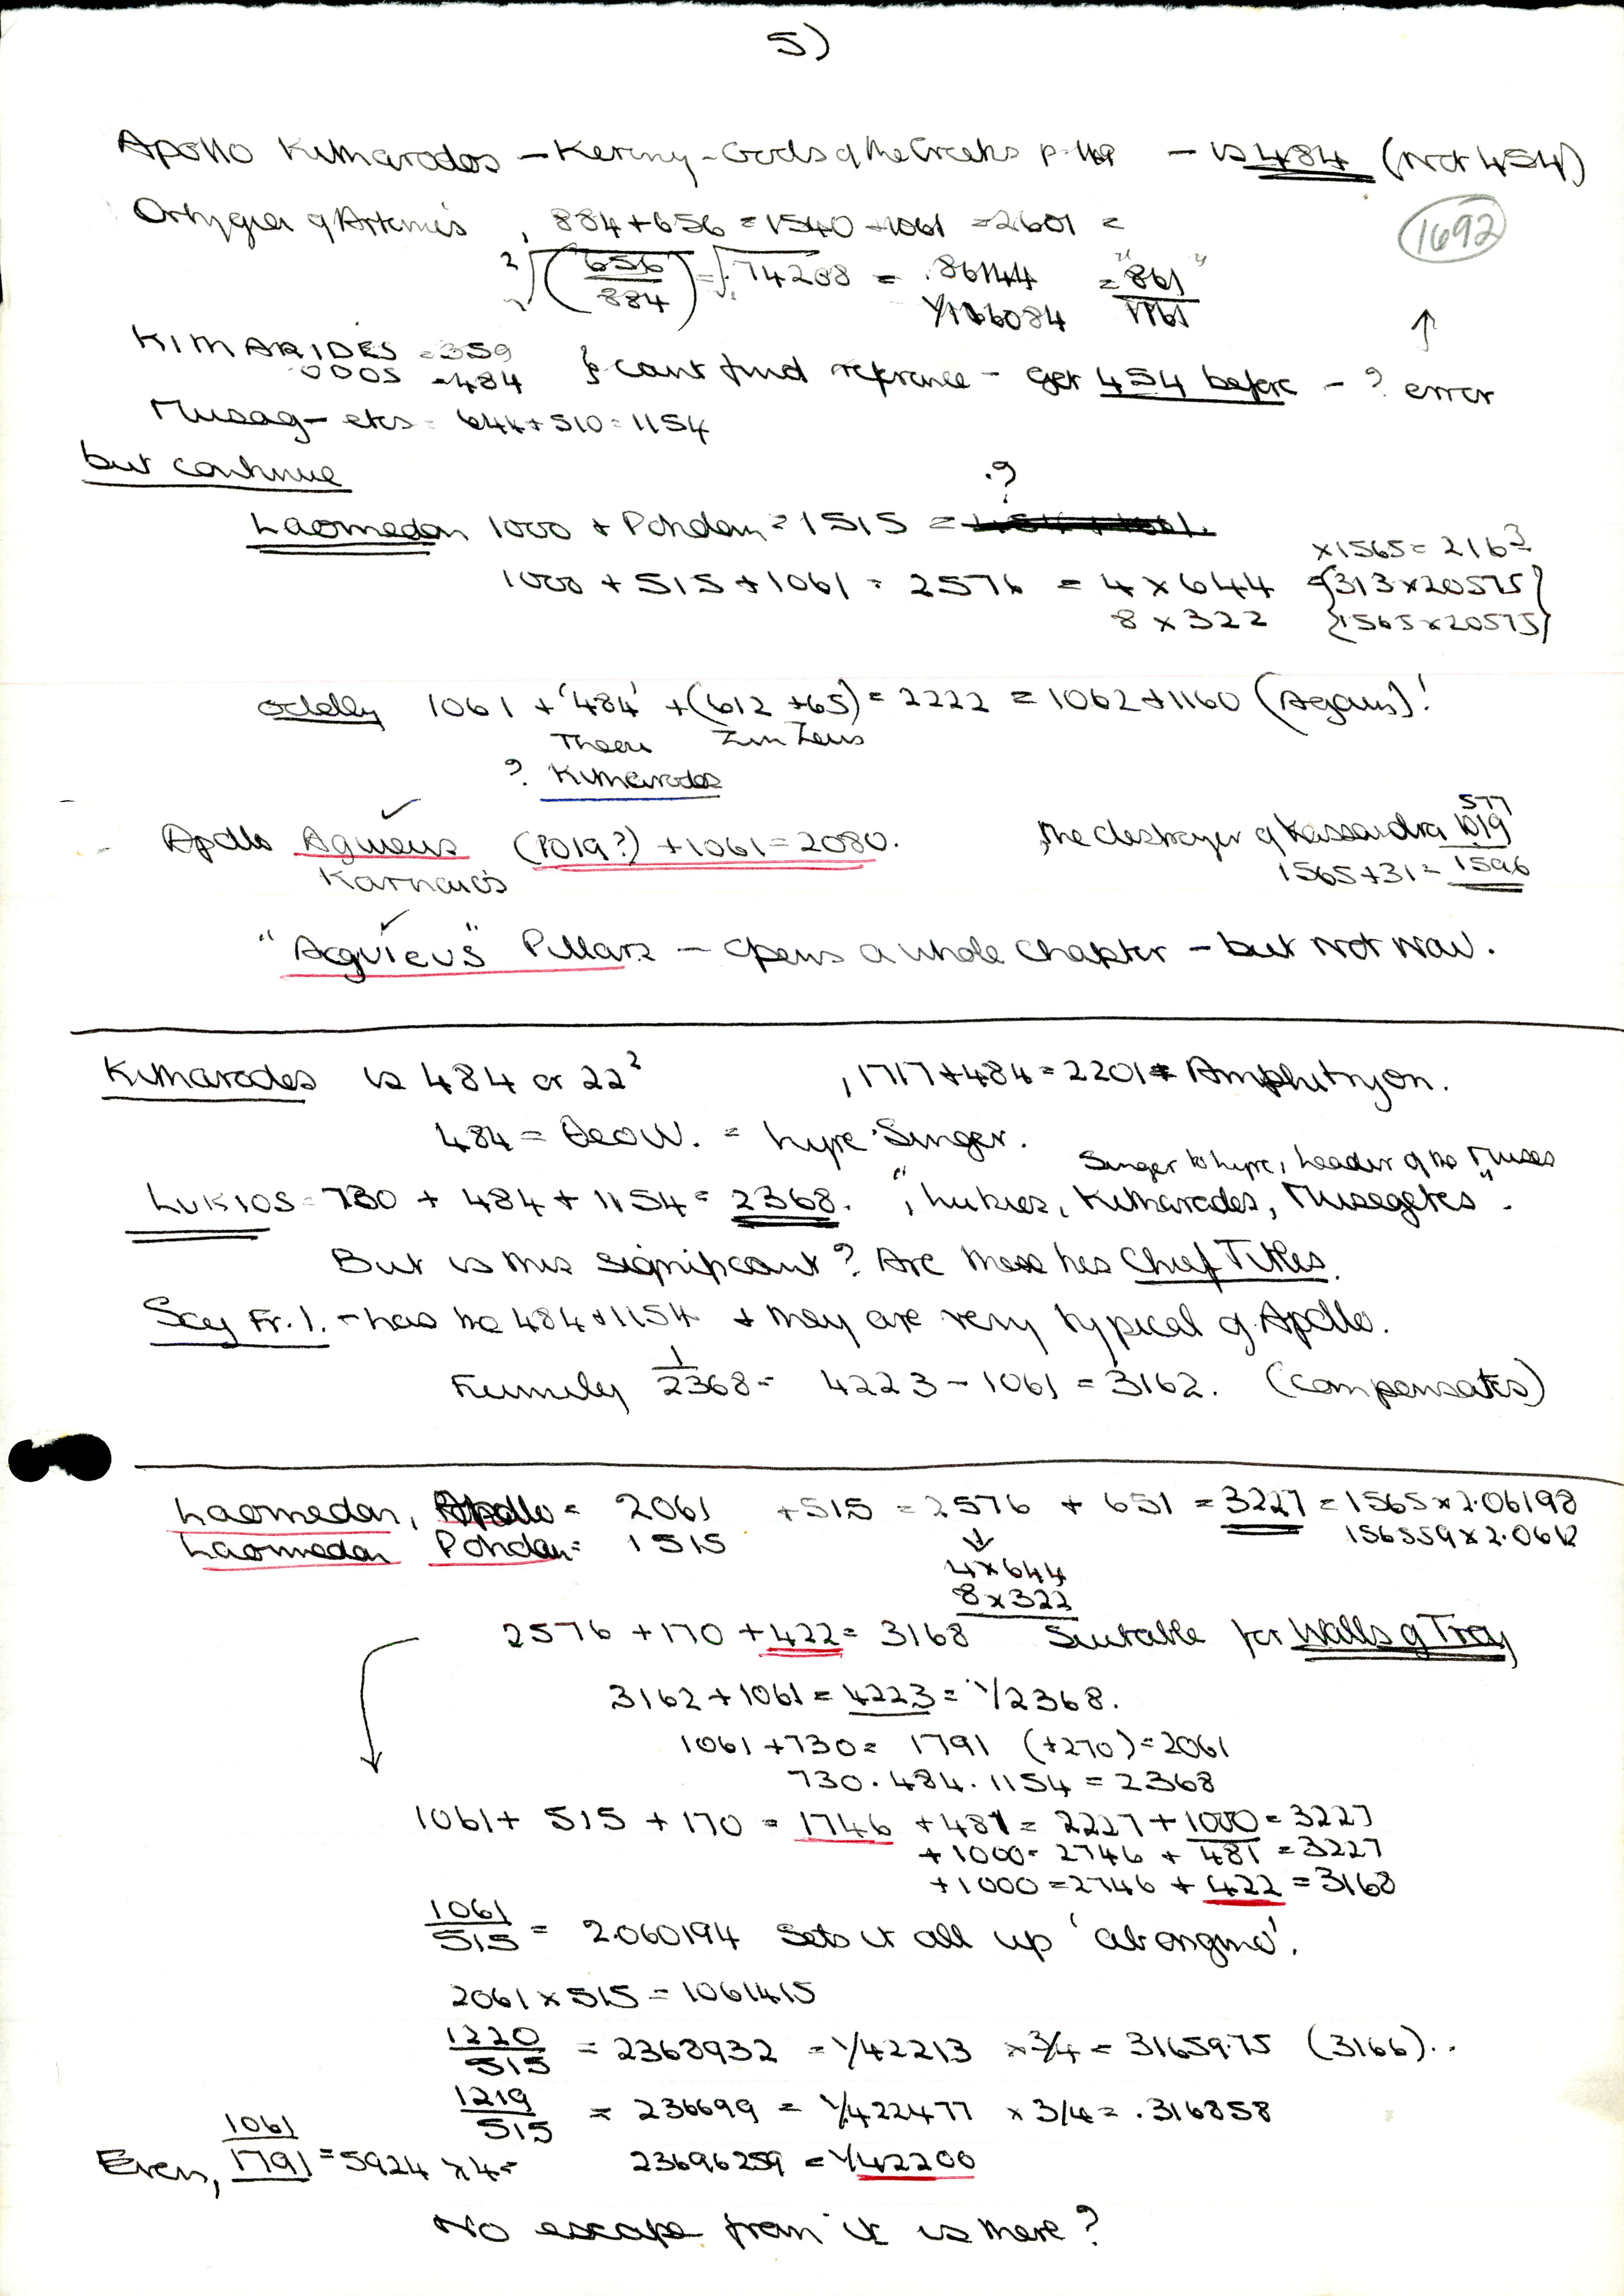 5)
Apollo Kitharodos — Kereny - Gods of the Greeks p. 149 — is 484 (Not 454)
Ortygia of Artemis , 884 + 656 = 1540 + 1061 = 2601 =
1692
2√(656/884) = √.74208 = .86144 = "861"
1/116084 1161
KITHARIDES = 359
ODOS = 484 } cant find reference — Get 454 before — ? error
Musag — etes = 644 + 510 = 1154
but continue
Laomedon 1000 + Poseidon = 1515 = ?
×1565 = 216³
1000 + 515 + 1061 = 2576 = 4 × 644 = {313 × 20575}
8 × 322 {1565 × 20575}
Oddly 1061 + '484' + (612 + 65) = 2222 = 1062 + 1160 (Again)!
Theou Zen Zeus
? Kitharodos
577
Apollo Aguieus (1019?) + 1061 = 2080. , the destroyer of Kassandra 1019
Karnaios 1565 + 31 = 1596
"Aguieus" Pillars — opens a whole chapter — but not now.
Kitharodos is 484 or 22² , 1717 + 484 = 2201 = Amphitryon.
484 = θεου. = Lyre Singer.
Singer to Lyre, Leader of the Muses
LUKIOS = 730 + 484 + 1154 = 2368. ", Lukios, Kitharodos, Musegetes".
But is this significant? Are these his Chief Titles.
Say Fr. 1. — has the 484 + 1154 + they are very typical of Apollo.
Funnily 1/2368 = 4223 — 1061 = 3162. (compensates)
Laomedon, Apollo = 2061 + 515 = 2576 + 651 = 3227 = 1565 × 2.06198
Laomedon Poseidon = 1515 156559 × 2.0612
4 × 644
8 × 322
2576 + 170 + 422 = 3168 Suitable for Walls of Troy
3162 + 1061 = 4223 = 1/2368.
1061 + 730 = 1791 (+270) = 2061
730 . 484 . 1154 = 2368
1061 + 515 + 170 = 1746 + 481 = 2227 + 1000 = 3227
+ 1000 = 2746 + 481 = 3227
+ 1000 = 2746 + 422 = 3168
1061/515 = 2.060194 Sets it all up 'ab origine'.
2061 × 515 = 1061415
1220/515 = 2368932 = 1/42213 × 3/4 = 31659.75 (3166)..
1219/515 = 236699 = 1/422477 × 3/4 = .316858
Even, 1061/1791 = 5924 × 4 = 23696259 = 1/42200
No escape from it is there?